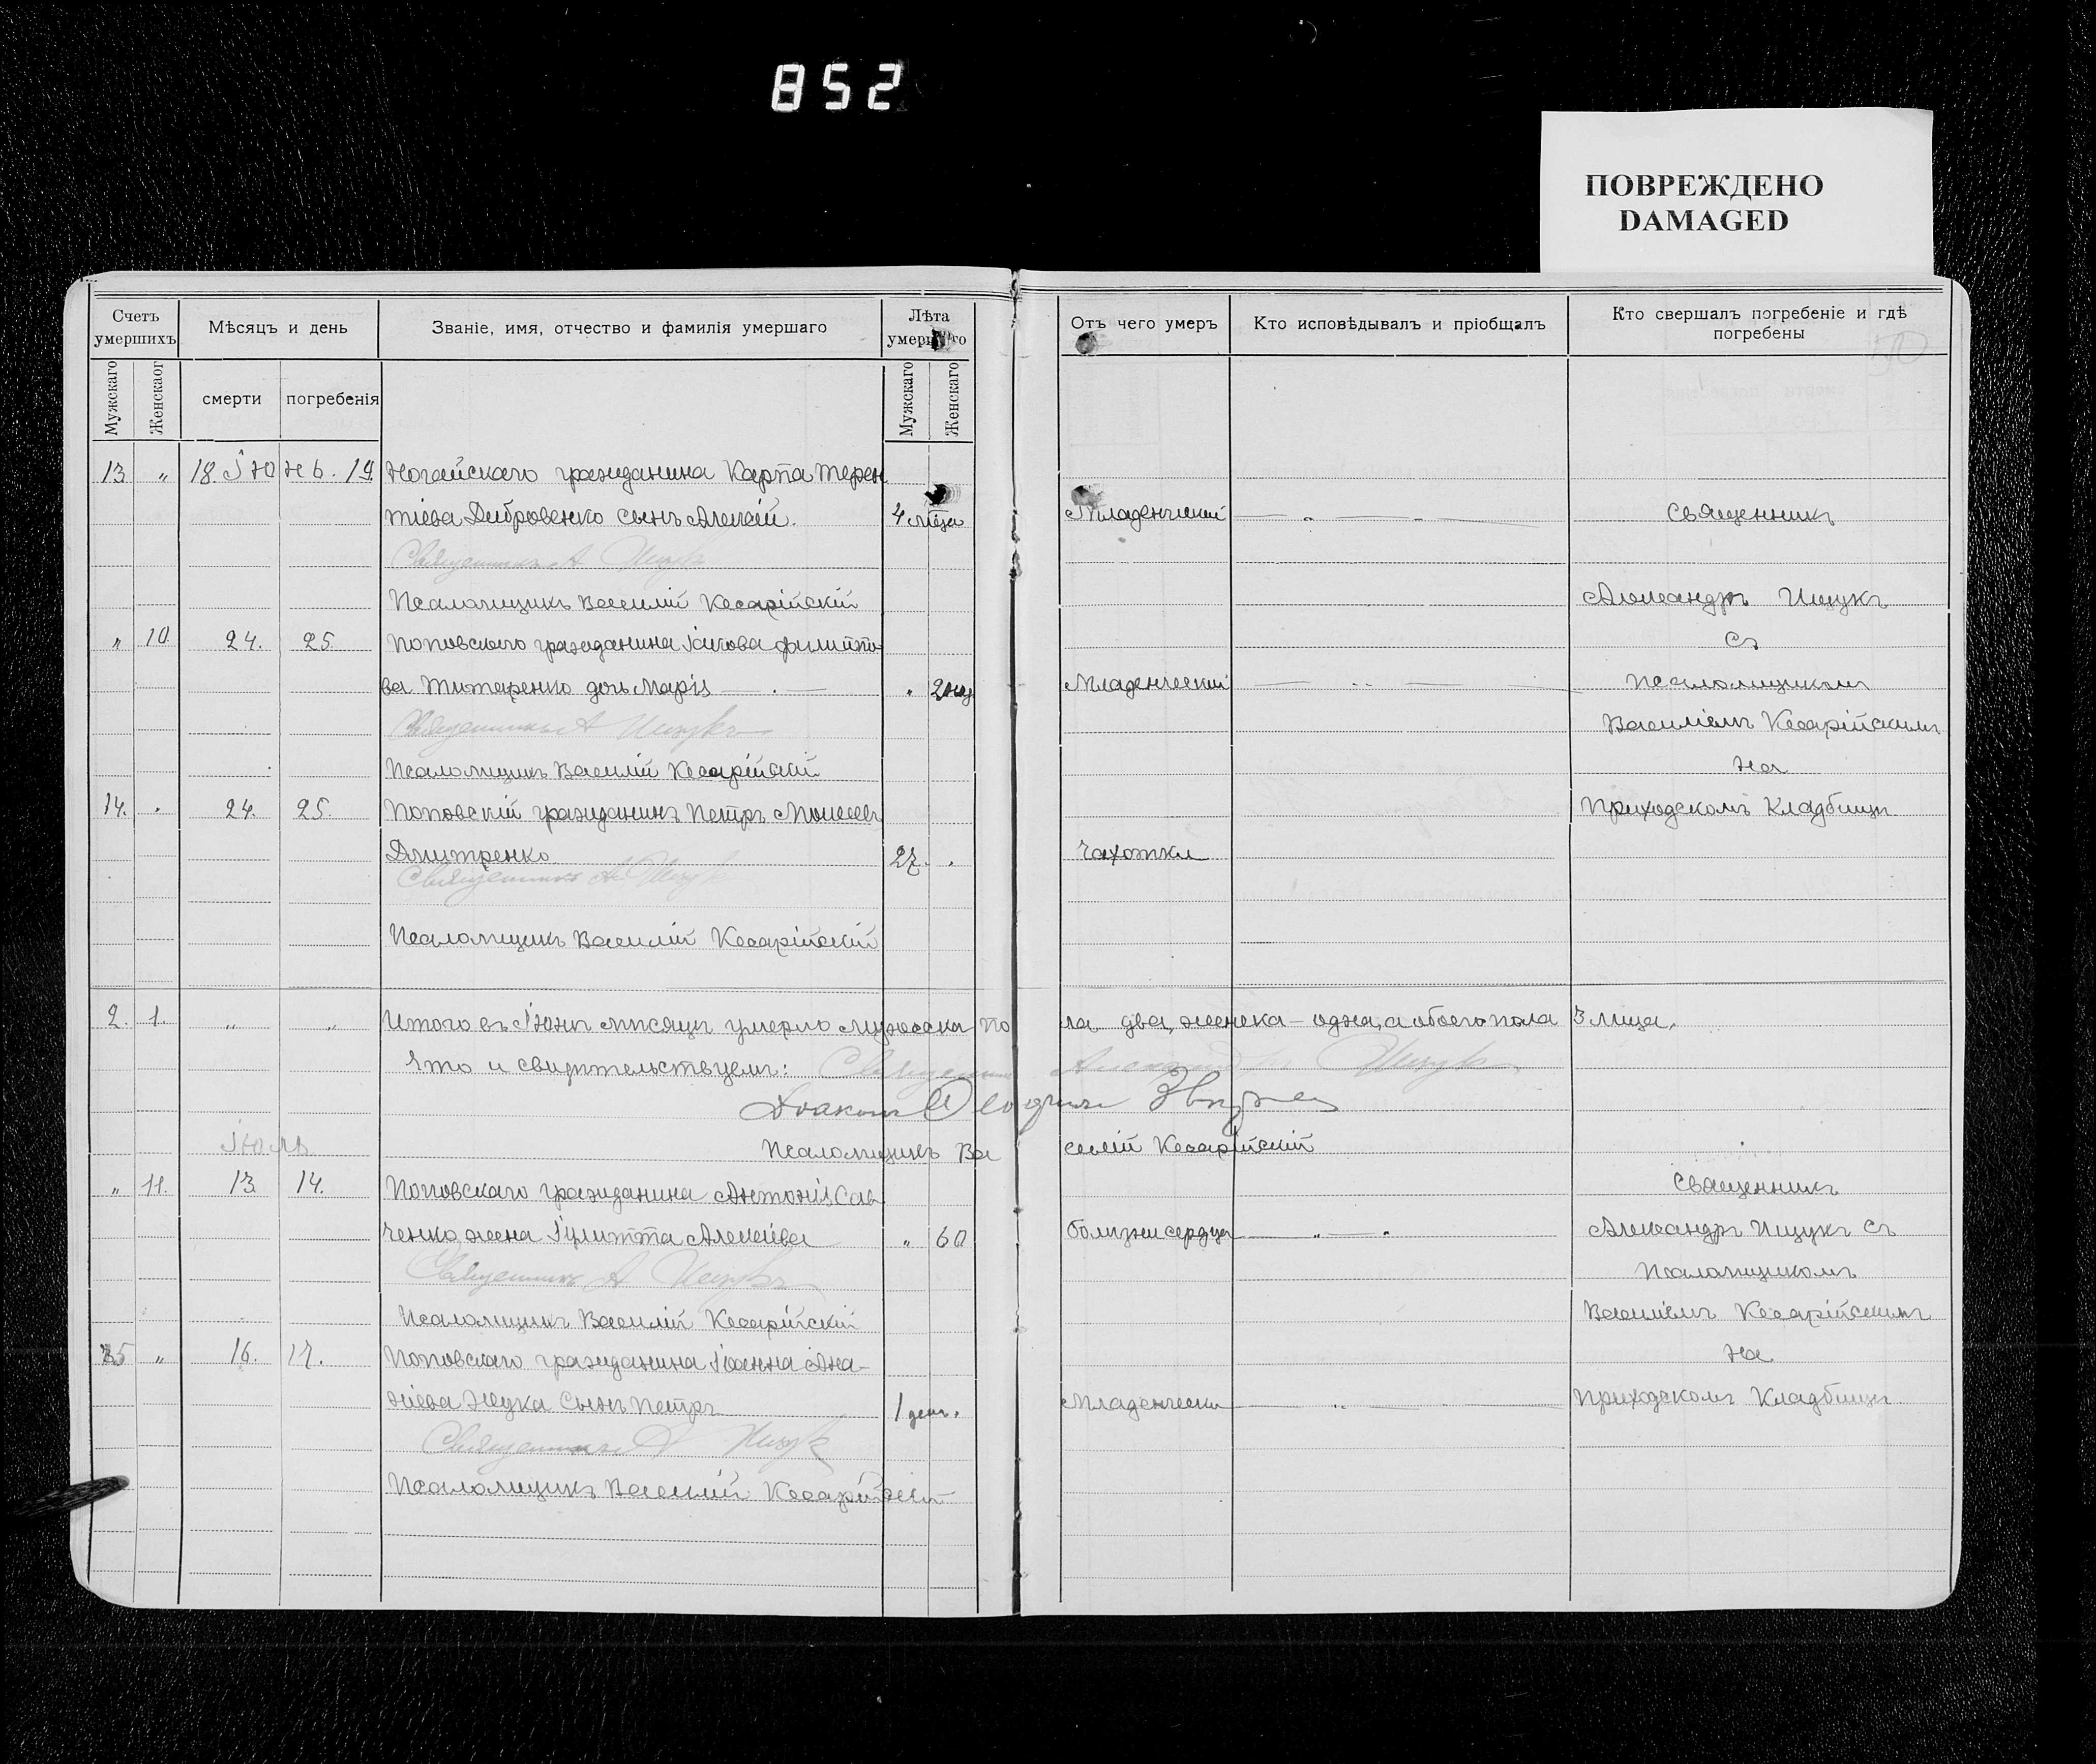 852
ПОВРЕЖДЕНО
DAMAGED
Счетъ умершихъ
Мѣсяцъ и день
Званіе, имя, отчество и фамилія умершаго
Лѣта умершаго
Отъ чего умеръ
Кто исповѣдывалъ и пріобщалъ
Кто свершалъ погребеніе и гдѣ погребены
Мужскаго
Женскаог
смерти
погребенія
Мужскаго
Женскаго
13 " 18. Іюнь. 19. Ногайскаго гражданина Карпа Терен
тіева Дибровенко сынъ Алексій. 4 мѣца Младенческой Священникъ
Священникъ А Ищукъ
Псаломщикъ Василій Кесарійскій Александръ Ищукъ
" 10. 24. 25. Поповскаго гражданина Іакова Филиппо Съ
ва Титаренко дочь Марія " 2 нед Младенческой Псаломщикомъ
Священникъ А Ищукъ Василіемъ Кесарійскимъ
Псаломщикъ Василій Кесарійскій На
14. " 24. 25. Поповскій гражданинъ Петръ Моисеевъ Приходскомъ Кладбищѣ
Дмитренко 27. " Чахотки
Священникъ А Ищукъ
Псаломщикъ Василій Кесарійскій
2. 1. " " Итого въ Іюнѣ мѣсяцѣ умерло мужеска пола два, женска - одна, а обоего пола 3 лица.
Что и свидѣтельствуемъ: Священникъ Александръ Ищукъ
Діаконъ Ѳеодоръ
Іюль Псаломщикъ Василій Кесарійскій
" 11. 13. 14. Поповскаго гражданина Антонія Сав Священникъ
ченко жена Іулитта Алексѣева " 60 болѣзни сердца Александръ Ищукъ съ
Священникъ А Ищукъ Псаломщикомъ
Псаломщикъ Василій Кесарійскій Василіемъ Кесарійскимъ
15 " 16. 17. Поповскаго гражданина Іоанна Ана- На
ніева Жука сынъ Петръ 1 день. Младенческ Приходскомъ Кладбищѣ.
Священникъ А Ищукъ
Псаломщикъ Василій Кесарійскій